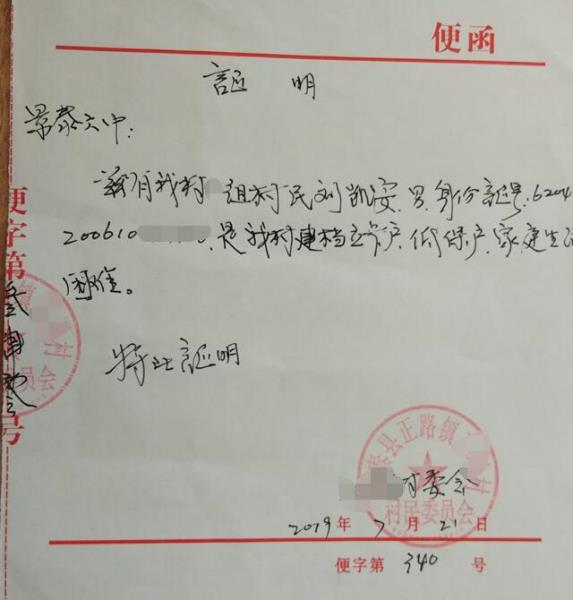 便函
証 明
景泰六中:
兹有我村 组村民刘凯安,男,身份証号:6204
200610 ,是我村建档立卡户,低保户,家庭生活
困难。
特此証明
村委会
2019年7月21日
便字第 340 号
景泰县正路镇 村
村民委员会
便字第 号
镇 村
委员会